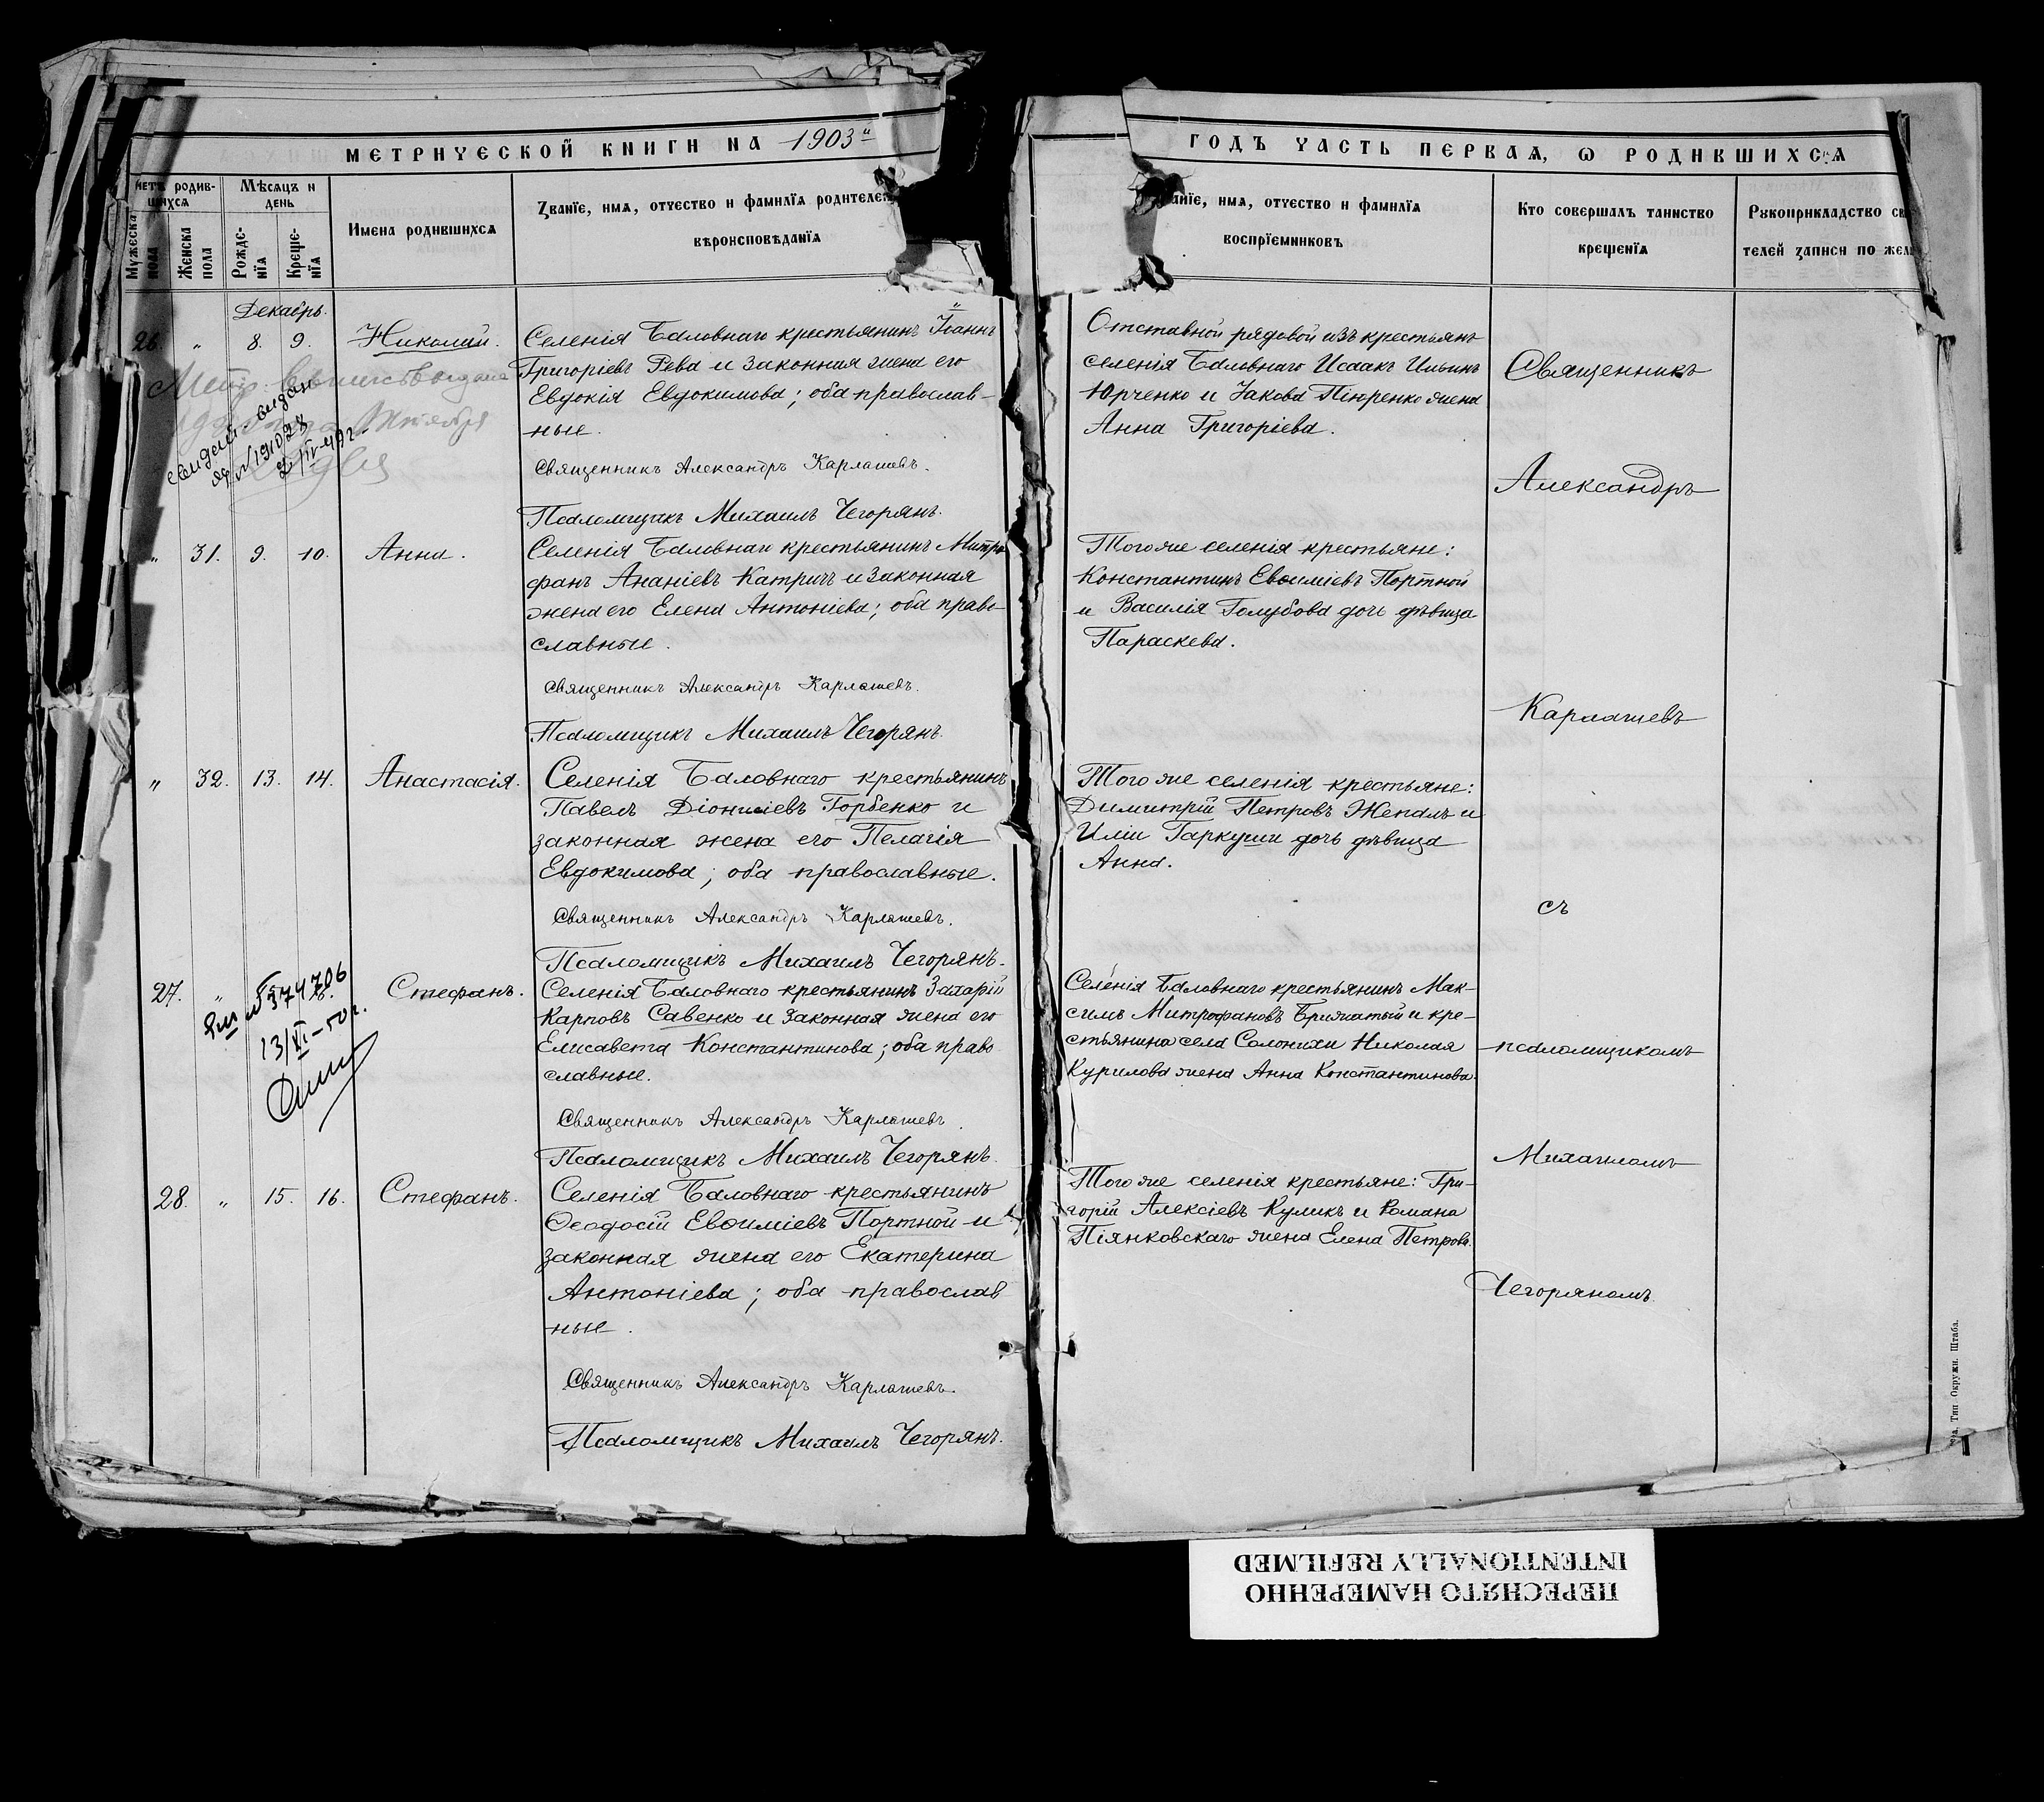 МЕТРИЧЕСКОЙ КНИГИ НА 1903й
ГОДЪ ЧАСТЬ ПЕРВАЯ, Ѡ РОДИВШИХСЯ
четъ родив-
шихся
Мѣсяцъ и
день
Мужеска
пола
Женска
пола
Рожде-
нїя
Креще-
нїя
Имена родившихся
Званїе, имя, отчество и фамилїя родителей
вѣроисповѣданїя
имя, отчество и фамилїя
воспрїемниковъ
Кто совершалъ таинство
крещенїя
Рукоприкладство
телей записи по
Декабрь.
26 " 8. 9. Николай.
Селенія Баловнаго крестьянинъ Іоаннъ
Григоріевъ Рева и законная жена его
Евдокія Евдокимова; оба православ-
ные.
Священникъ Александръ Карлашевъ.
Псаломщикъ Михаилъ Чегорянъ.
Отставной рядовой изъ крестьянъ
селенія Баловнаго Исаакъ Ильинъ
Юрченко и Іакова Піюренко жена
Анна Григоріева.
" 31. 9. 10. Анна.
Селенія Баловнаго крестьянинъ Митро
фанъ Ананіевъ Катричъ и законная
жена его Елена Антоніева; оба право-
славные.
Священникъ Александръ Карлашевъ.
Псаломщикъ Михаилъ Чегорянъ.
Того же селенія крестьяне:
Константинъ Евѳиміевъ Портной
и Василія Голубова дочь дѣвица
Параскева.
" 32. 13. 14. Анастасія.
Селенія Баловнаго крестьянинъ
Павелъ Діонисіевъ Горбенко и
законная жена его Пелагія
Евдокимова; оба православные.
Священникъ Александръ Карлашевъ.
Псаломщикъ Михаилъ Чегорянъ.
Того же селенія крестьяне:
Димитрій Петровъ Жепалъ и
Иліи Гаркуши дочь дѣвица
Анна.
27. " Стефанъ.
№ 374706
13/VI-50 г.
Селенія Баловнаго крестьянинъ Захарій
Карповъ Савенко и законная жена его
Елисавета Константинова; оба право
славные.
Священникъ Александръ Карлашевъ.
Псаломщикъ Михаилъ Чегорянъ.
Селенія Баловнаго крестьянинъ Мак-
симъ Митрофановъ Брижатый и кре-
стьянина села Солонихи Николая
Курилова жена Анна Константинова.
28. " 15. 16. Стефанъ.
Селенія Баловнаго крестьянинъ
Ѳеодосій Евѳиміевъ Портной и
законная жена его Екатерина
Антоніева; оба православ
ные.
Священникъ Александръ Карлашевъ.
Псаломщикъ Михаилъ Чегорянъ.
Того же селенія крестьяне: Гри-
горій Алексіевъ Куликъ и Романа
Піянковскаго жена Елена Петрова.
Священникъ
Александръ
Карлашевъ
съ
псаломщикомъ
Михаиломъ
Чегоряномъ.
Тип. Окружн. Штаба.
ПЕРЕСНЯТО НАМЕРЕННО
INTENTIONALLY REFILMED